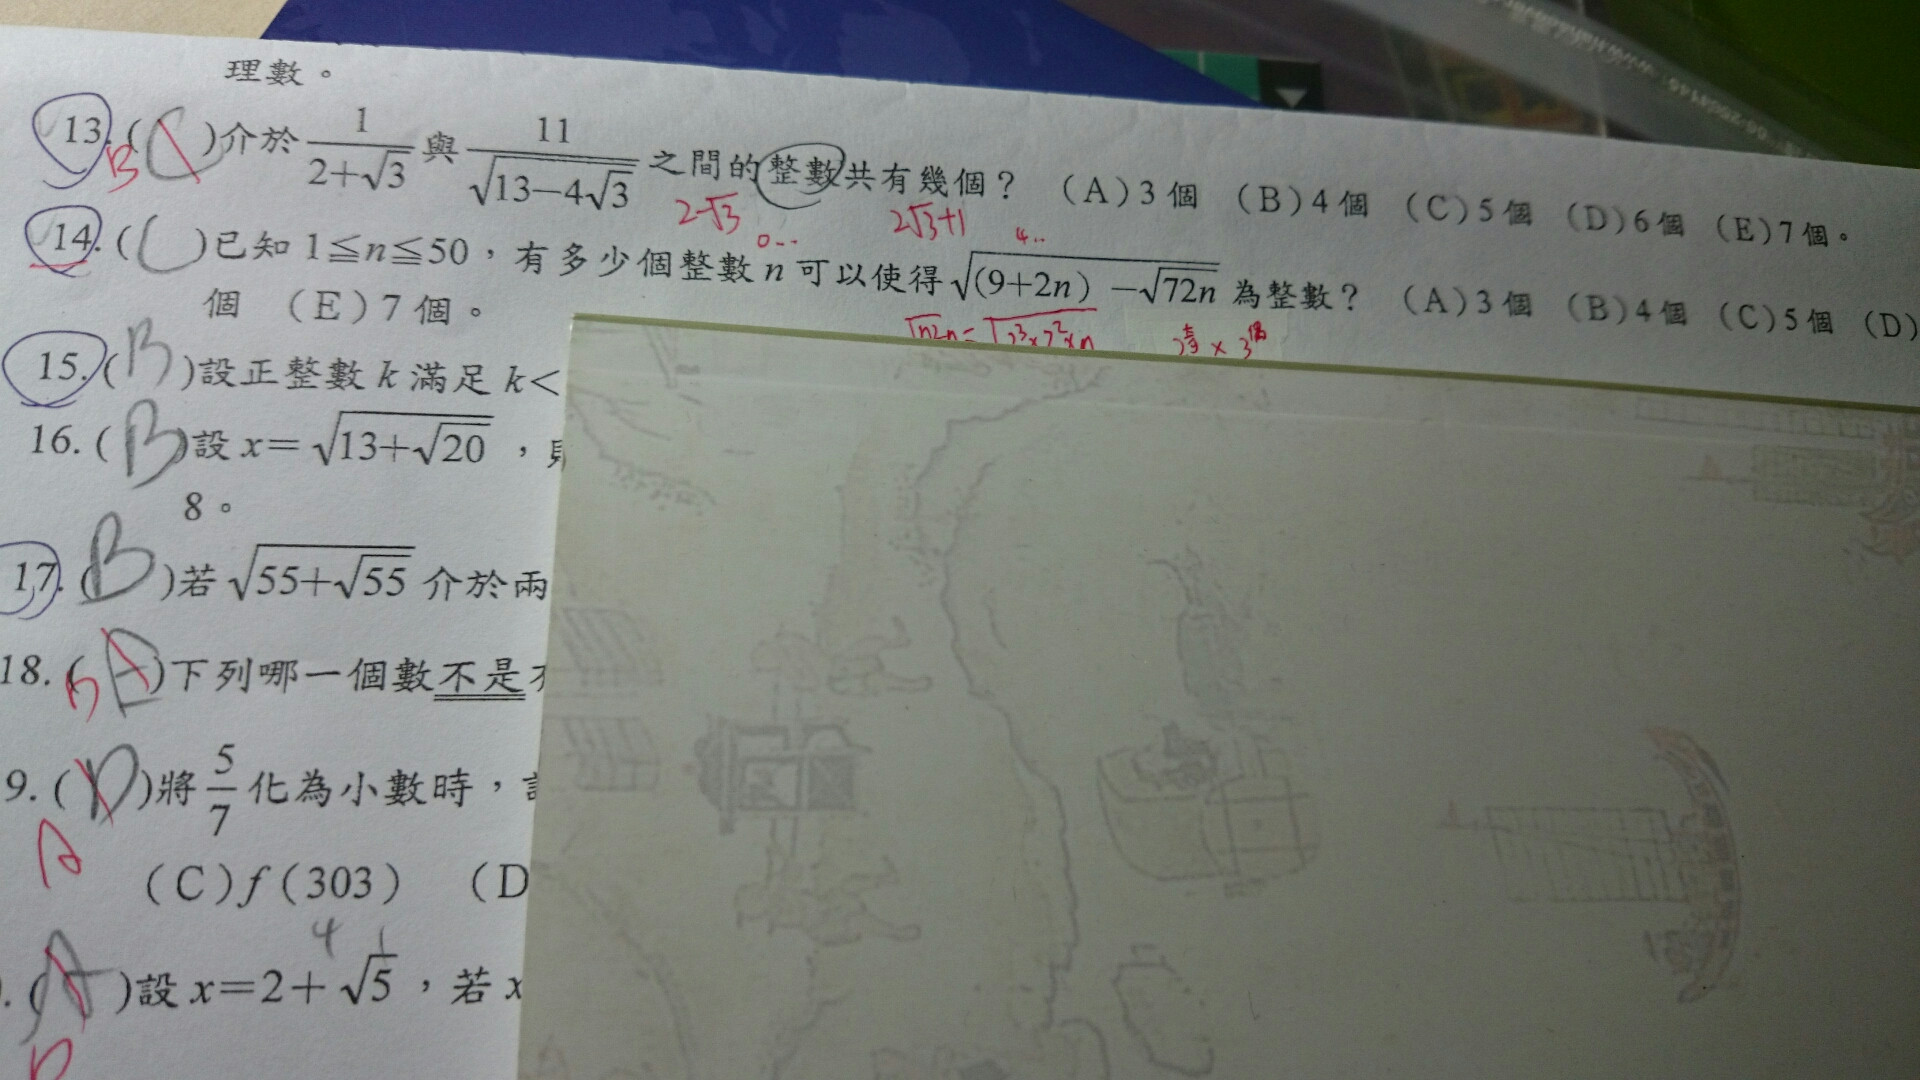 理數。
13. ( B )介於 1/(2+√3) 與 11/√(13−4√3) 之間的整數共有幾個？ (A)3個 (B)4個 (C)5個 (D)6個 (E)7個。
2-√3 2√3+1
0.. 4..
14. ( C )已知 1≦n≦50，有多少個整數 n 可以使得 √((9+2n) −√72n) 為整數？ (A)3個 (B)4個 (C)5個 (D)
個 (E)7個。
15. ( B )設正整數 k 滿足 k<
16. ( B )設 x= √(13+√20) ，
8。
17. ( B )若 √(55+√55) 介於兩
18. ( B )下列哪一個數不是
9. ( D )將 5/7 化為小數時，
A
(C)f(303) (D
4 1
. ( A )設 x=2+√5，若 x